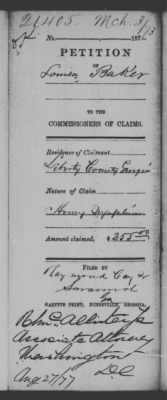 21,405 Mch 3/73
No. 187
PETITION
OF
Louisa Baker
TO THE
COMMISSIONERS OF CLAIMS.
Residence of Claimant
Liberty County Georgia
Nature of Claim
Army Supplies
Amount claimed, $ 255.00
FILED BY
Raymond Cay Jr
Savannah
Ga
GAZETTE PRINT, HINESVILLE, GEORGIA.
Associate Attorney
Washington
D.C.
Aug 27/77